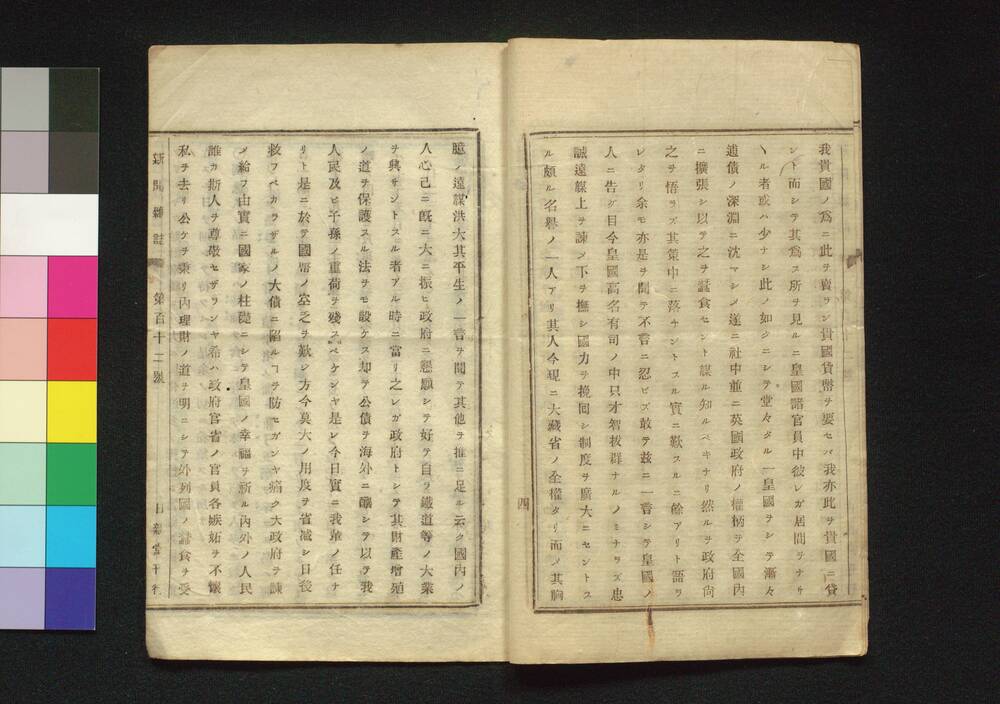 我貴國ノ爲ニ此ヲ賣ラン貴國貨幣ヲ要セバ我亦此ヲ貴國ニ貸
ント而シテ其爲ス所ヲ見ルニ皇國諸官員中彼レガ居間ヲナサ
ヽル者或ハ少ナシ此ノ如クニシテ堂々タル一皇國ヲシテ漸々
逋債ノ深淵ニ沈マシメ遂ニ社中並ニ英國政府ノ權柄ヲ全國内
ニ擴張シ以テ之ヲ蠶食セント謀ル知ルベキナリ然ルヲ政府尚
之ヲ悟ラズ其策中ニ落チントスル實ニ歎スルニ餘アリト語ラ
レタリ余モ亦是ヲ聞テ不言ニ忍ビズ敢テ茲ニ一言シテ皇國ノ
人ニ告グ目今皇國高名有司ノ中只才智拔群ナルノミナラズ忠
誠遠謀上ヲ諫メ下ヲ撫シ國力ヲ挽回シ制度ヲ廣大ニセントス
ル頗ル名譽ノ一人アリ其人今現ニ大藏省ノ全權タリ而メ其胸
四
臆ノ遠謀洪大其平生ノ一言ヲ聞テ其他ヲ推ニ足ル云ク國内ノ
人心已ニ既ニ大ニ振ヒ政府ニ懇願シテ好テ自ラ鐵道等ノ大業
ヲ興サントスル者アル時ニ當リ之レガ政府トシテ其財產增殖
ノ道ヲ保護スル法ヲモ設ケス却テ公債ヲ海外ニ釀シテ以テ我
人民及ヒ子孫ノ重荷ヲ殘スベケンヤ是レ今日實ニ我輩ノ任ナ
リト是ニ於テ國帑ノ空乏ヲ歎シ方今莫大ノ用度ヲ省減シ日後
救フベカラザルノ大債ニ陷ルヿヲ防セガンヤ痛ク大政府ヲ諫
メ給フ由實ニ國家ノ柱礎ニシテ皇國ノ幸福ヲ祈ル内外ノ人民
誰カ斯人ヲ尊敬セザランヤ希ハ政府官省ノ官員各嫉妬ヲ不懷
私ヲ去リ公ケヲ秉リ内理財ノ道ヲ明ニシテ外列國ノ蠶食ヲ受
新聞雜誌 第百十二號 日新堂干行